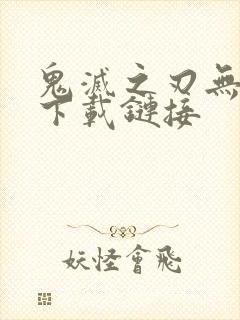 鬼滅之刃無
下載鏈接
妖怪會飛